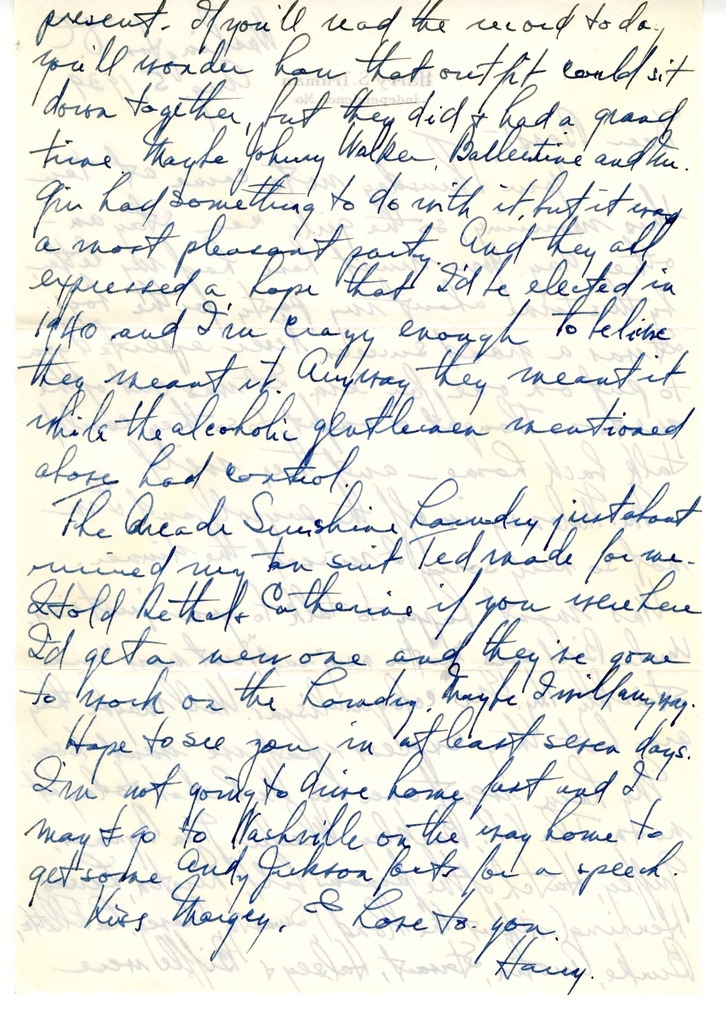 present. If you'll read the record today,
you'll wonder how that outfit could sit
down together, but they did & had a grand
time Maybe Johnny Walker, Ballentine and Mr.
Gin had something to do with it, but it was
a most pleasant party. And they all
expressed a hope that I'd be elected in
1940 and I'm crazy enough to believe
they meant it. Anyway they meant it
while the alcoholic gentlemen mentioned
above had control.
The Arcade Sunshine Laundry just about
ruined my tan suit Ted made for me.
I told Bethel & Catherine if you were here
I'd get a new one and they've gone
to work on the Laundry. Maybe I will anyway.
Hope to see you in at least seven days.
I'm not going to drive home fast and I
may go to Nashville on the way home to
get some Andy Jackson facts for a speech.
Kiss Margey, & love to you.
Harry.